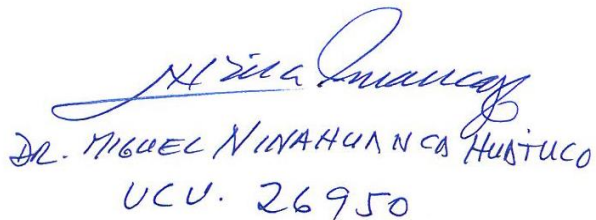 DR. MIGUEL NINAHUANCA HUATUCO
UCV. 26950